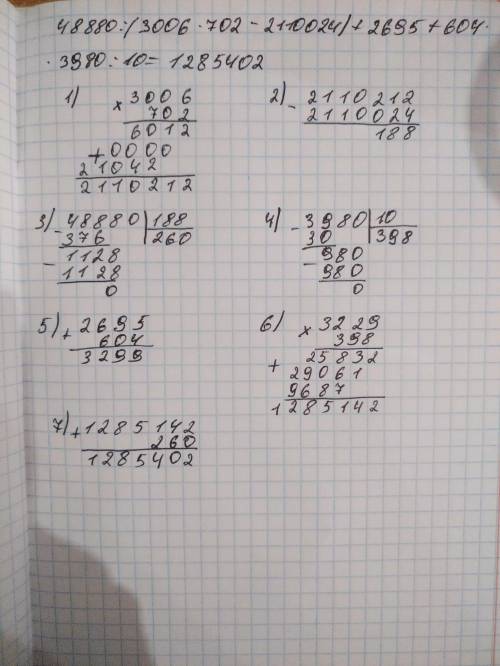 48880:(3006·702-2110024)+2695+604·
·3980:10=1285402
1) × 3006
702
6012
+ 0000
21042
2110212
2) - 2110212
2110024
188
3) - 48880 | 188
376 | 260
- 1128
1128
0
4) - 3980 | 10
30 | 398
- 980
980
0
5) + 2695
604
3299
6) × 3229
398
25832
+ 29061
9687
1285142
7) + 1285142
260
1285402